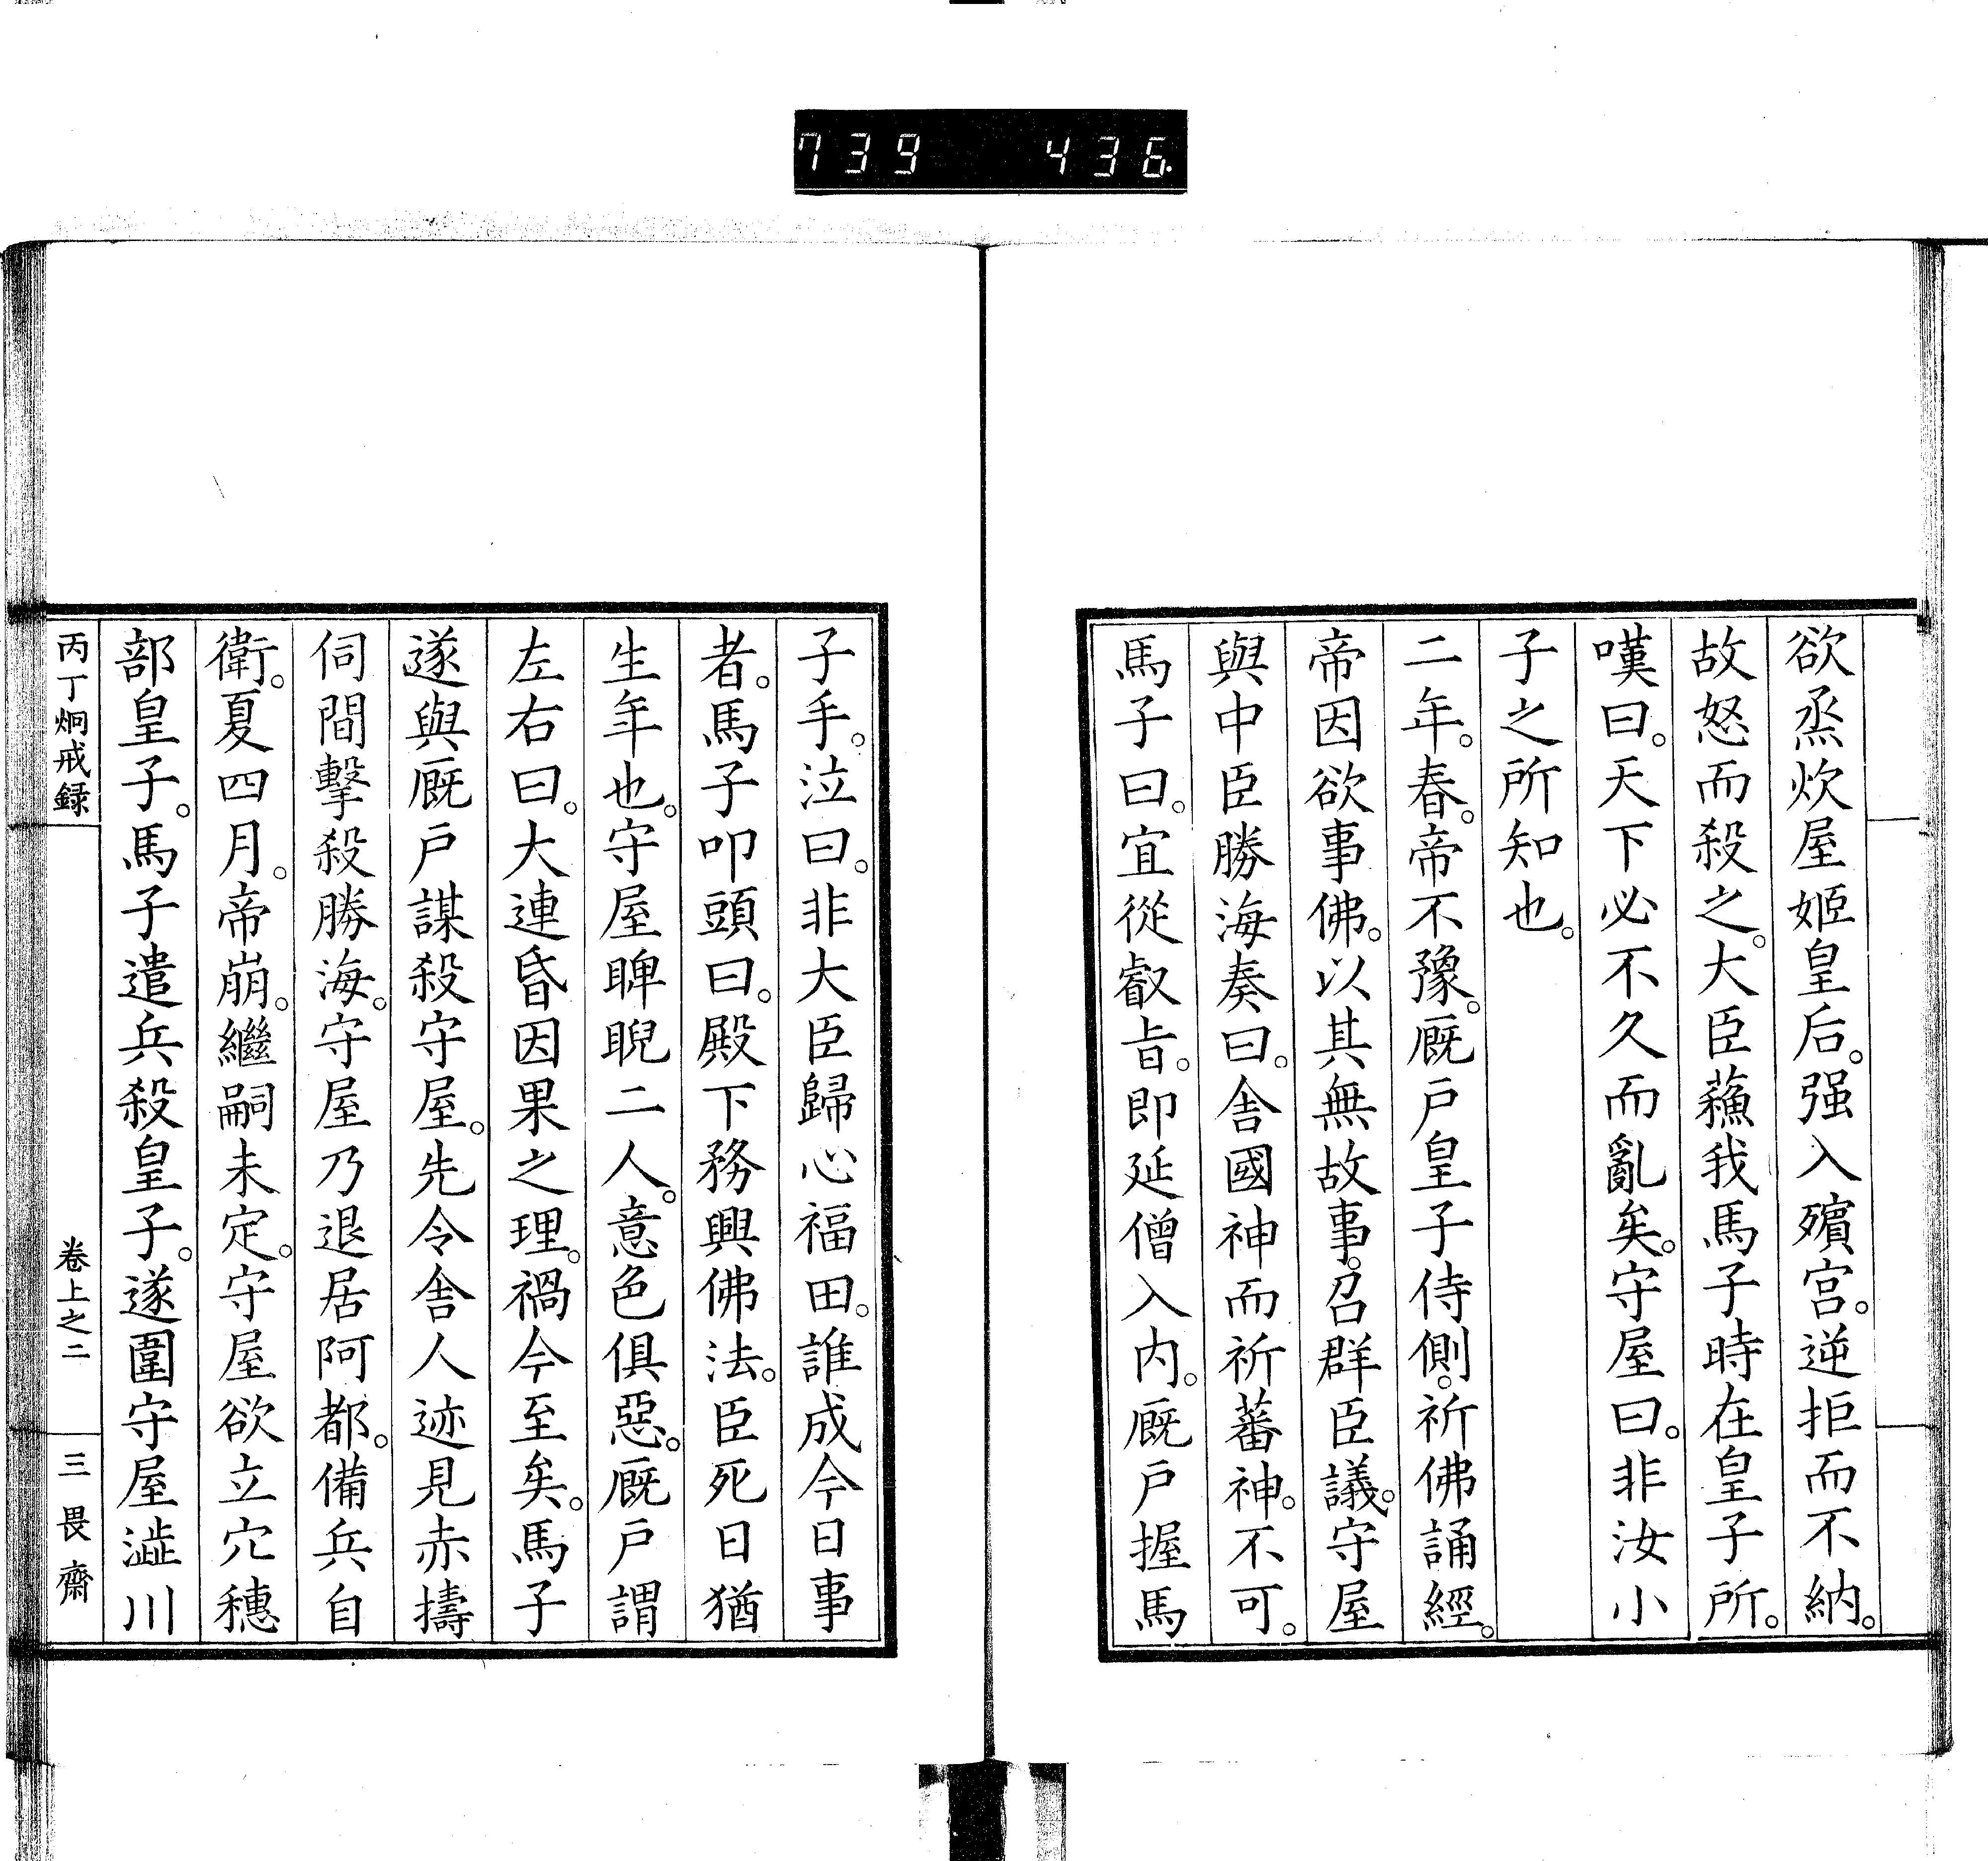 739 436.
欲烝炊屋姬皇后。强入殯宮。逆拒而不納。
故怒而殺之。大臣蘓我馬子時在皇子所。
嘆曰。天下必不久而亂矣。守屋曰。非汝小
子之所知也。
二年。春。帝不豫。厩戸皇子侍側。祈佛誦經。
帝因欲事佛。以其無故事。召群臣議。守屋
與中臣勝海奏曰。舎國神而祈蕃神。不可。
馬子曰。宜從叡旨。即延僧入内。厩戸握馬
子手。泣曰。非大臣歸心福田。誰成今日事
者。馬子叩頭曰。殿下務興佛法。臣死日猶
生年也。守屋睥睨二人。意色俱惡。厩戸謂
左右曰。大連昏因果之理。禍今至矣。馬子
遂與厩戸謀殺守屋。先令舎人迹見赤擣
伺間擊殺勝海。守屋乃退居阿都。備兵自
衛。夏四月。帝崩。繼嗣未定。守屋欲立穴穗
部皇子。馬子遣兵殺皇子。遂圍守屋澁川
丙丁炯戒録 卷上之二 三畏齋